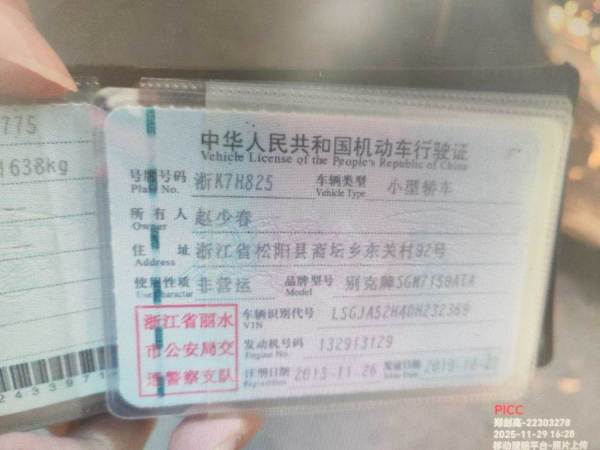 775
1638kg
中华人民共和国机动车行驶证
Vehicle License of the People's Republic of China
号牌号码 浙K7H825 车辆类型 小型轿车
Plate No. Vehicle Type
所有人 赵少春
Owner
住址 浙江省松阳县斋坛乡东关村92号
Address
使用性质 非营运 品牌型号 别克牌SGM7150ATA
Use Character Model
浙江省丽水
市公安局交
通警察支队
车辆识别代号 LSGJA52H4DH232369
VIN
发动机号码 132913129
Engine No.
注册日期 2013-11-26 发证日期
Issue Date
PICC
2025-11-29 16:28
移动理赔平台-照片上传